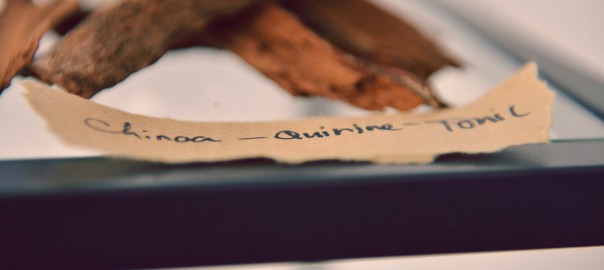 Chinoa - Quinine - Tonic